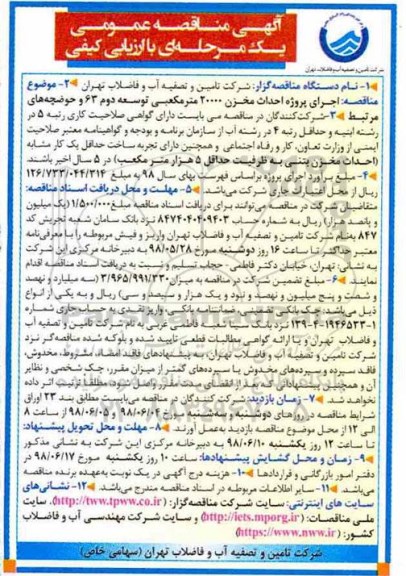 آگهی مناقصه عمومی
یک مرحله‌ای با ارزیابی کیفی
شرکت تامین و تصفیه آب و فاضلاب تهران
۱- نام دستگاه مناقصه‌گزار: شرکت تامین و تصفیه آب و فاضلاب تهران ۲- موضوع
مناقصه: اجرای پروژه احداث مخزن ۲۰۰۰۰ مترمکعبی توسعه دوم ۶۳ و حوضچه‌های
مرتبط ۳- شرکت‌کنندگان در مناقصه می بایست دارای گواهی صلاحیت کاری رتبه ۵ در
رشته ابنیه و حداقل رتبه ۴ در رشته آب از سازمان برنامه و بودجه و گواهینامه معتبر صلاحیت
ایمنی از وزارت تعاون، کار و رفاه اجتماعی و همچنین دارای تجربه ساخت حداقل یک کار مشابه
(احداث مخزن بتنی به ظرفیت حداقل ۵ هزار متر مکعب) در ۵ سال اخیر باشند
۴- مبلغ برآورد اجرای پروژه براساس فهرست بهای سال ۹۸ به مبلغ ۱۲۶/۷۳۳/۰۴۴/۳۱۴
ریال از محل اعتبارات شرکت می‌باشد. ۵- مهلت و محل دریافت اسناد مناقصه:
متقاضیان شرکت در مناقصه می توانند برای دریافت اسناد مناقصه مبلغ ۱/۵۰۰/۰۰۰ (یک میلیون
و پانصد هزار) ریال به شماره حساب ۸۴۷۴۰۴۰۴۰۹۴۰۳ نزد بانک سامان شعبه تجریش کد
۸۴۷ بنام شرکت تامین و تصفیه آب و فاضلاب تهران واریز و فیش مربوطه را با معرفی‌نامه
معتبر حداکثر تا ساعت ۱۶ روز دوشنبه مورخ ۹۸/۰۵/۲۸ به دبیرخانه مرکزی این شرکت
به نشانی: تهران، خیابان دکتر فاطمی- حجاب تسلیم و نسبت به دریافت اسناد مناقصه اقدام
نمایند. ۶- مبلغ تضمین شرکت در مناقصه به میزان ۳/۹۶۵/۹۹۱/۳۳۰ (سه میلیارد و نهصد
و شصت و پنج میلیون و نهصد و نود و یک هزار و سیصد و سی) ریال و به یکی از انواع
ذیل می‌باشد: چک بانکی تضمین شده، ضمانتنامه بانکی، واریز نقدی به حساب جاری شماره
نزد بانک سینا شعبه فاطمی غربی به نام شرکت تامین و تصفیه آب
و فاضلاب تهران و یا ارائه گواهی مطالبات قطعی تایید شده و بلوکه شده مناقصه‌گر نزد
شرکت تامین و تصفیه آب و فاضلاب تهران، به پیشنهادهای فاقد امضاء، مشروط، مخدوش،
فاقد سپرده و سپرده‌های مخدوش یا سپرده‌های کمتر از میزان مقرر، چک شخصی و نظایر
آن و همچنین پیشنهاداتی که بعد از انقضای مدت مقرر واصل شود مطلقا ترتیب اثر داده
نخواهد شد. ۷- زمان بازدید: شرکت کنندگان در مناقصه می‌بایست مطابق بند ۲۳ اوراق
شرایط مناقصه در روزهای دوشنبه و سه‌شنبه مورخ ۹۸/۰۶/۰۴ و ۹۸/۰۶/۰۵ از ساعت ۸
الی ۱۲ از محل موضوع مناقصه بازدید به‌عمل آورند. ۸- مهلت و محل تحویل پیشنهاد:
تا ساعت ۱۲ روز یکشنبه ۹۸/۰۶/۱۰ به دبیرخانه مرکزی این شرکت به نشانی مذکور
۹- زمان و محل گشایش پیشنهادها: ساعت ۱۰ روز یکشنبه مورخ ۹۸/۰۶/۱۷ در
دفتر امور بازرگانی و قراردادها ۱۰- هزینه درج آگهی در یک نوبت به‌عهده برنده مناقصه
می‌باشد. ۱۱- سایر اطلاعات مربوطه در اسناد مناقصه مندرج می‌باشد. ۱۲- نشانی‌های
سایت های اینترنتی: سایت شرکت مناقصه‌گزار: (http://tww.tpww.co.ir)، سایت
ملی مناقصات: (http://iets.mporg.ir) و سایت شرکت مهندسی آب و فاضلاب
کشور: (https://www.nww.ir)
شرکت تامین و تصفیه آب و فاضلاب تهران (سهامی خاص)